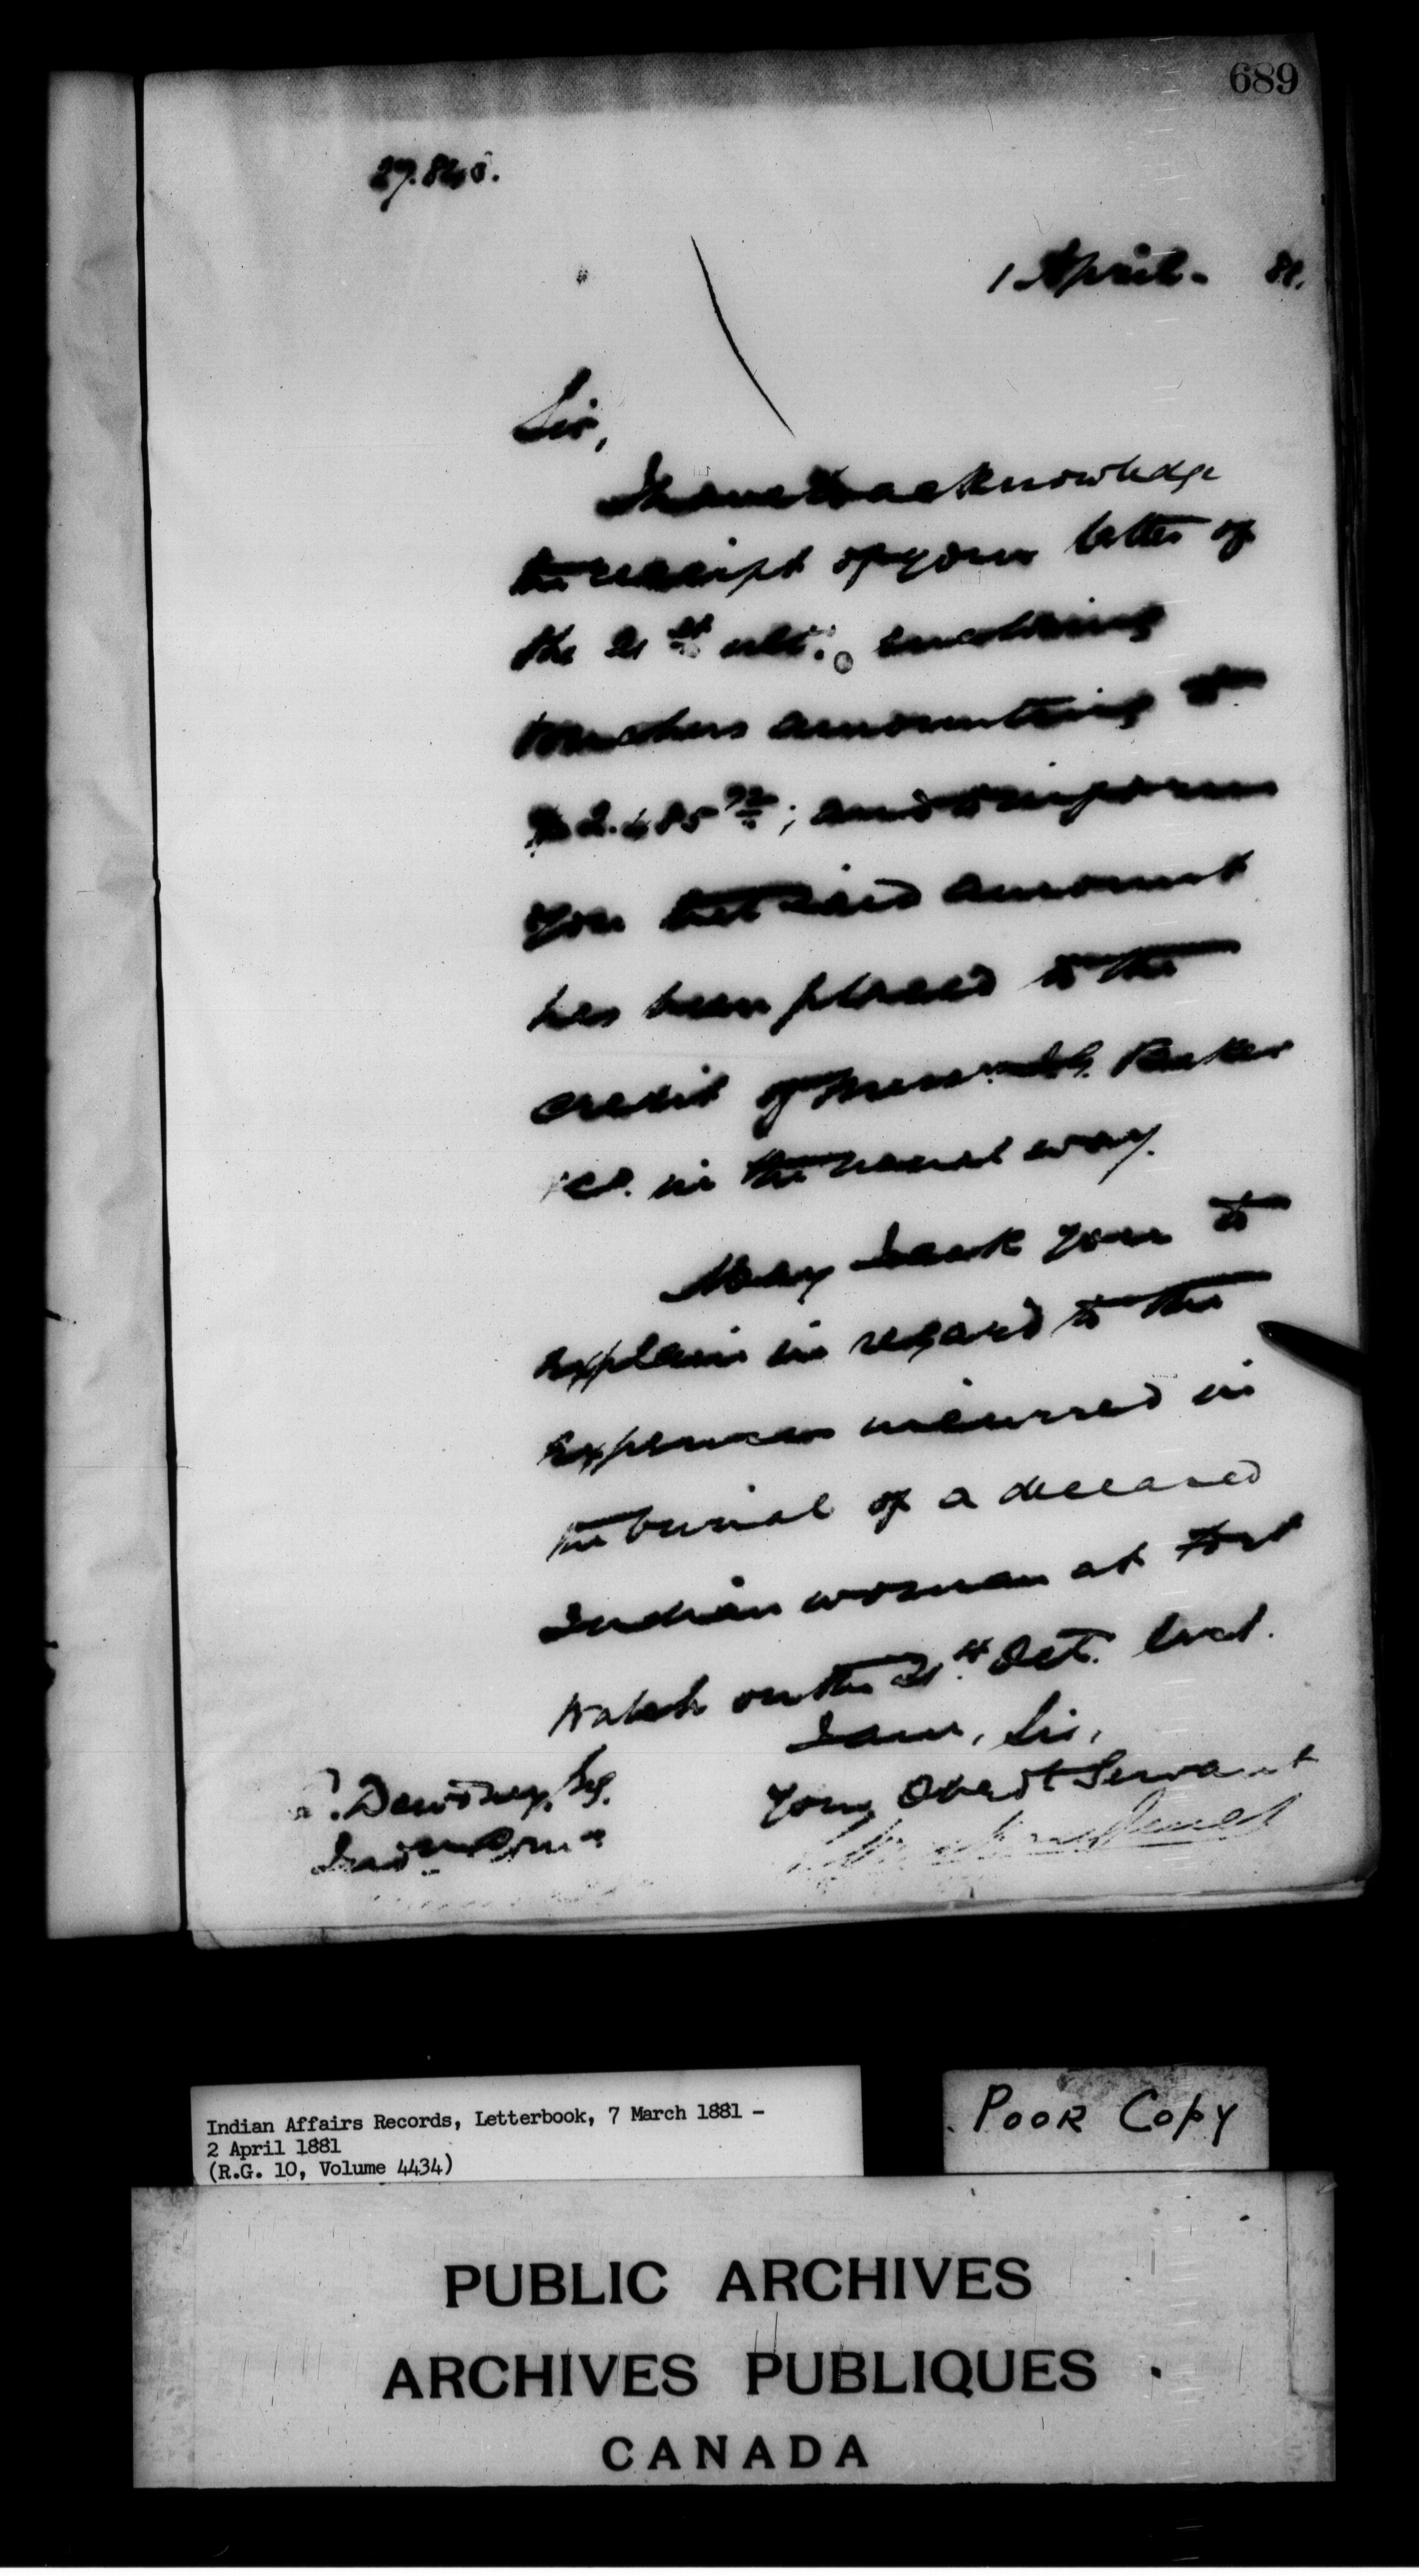 689
27.840.
1 April - 81.
Sir,
I have to acknowledge
the receipt of your letter of
the 21st ult: enclosing
vouchers amounting to
$2.485 72; and to inform
you that said amount
has been placed to the
credit of Messrs. I.G. Baker
& Co. in the usual way.
May I ask you to
explain in regard to the
expenses incurred in
the burial of a deceased
Indian woman at Fort
Walsh on the 21st Oct. last.
I am, Sir,
Your Obedt Servant
E. Dewdney, Esq.
Indn Comr
Indian Affairs Records, Letterbook, 7 March 1881 -
2 April 1881
(R.G. 10, Volume 4434)
POOR COPY
PUBLIC ARCHIVES
ARCHIVES PUBLIQUES
CANADA